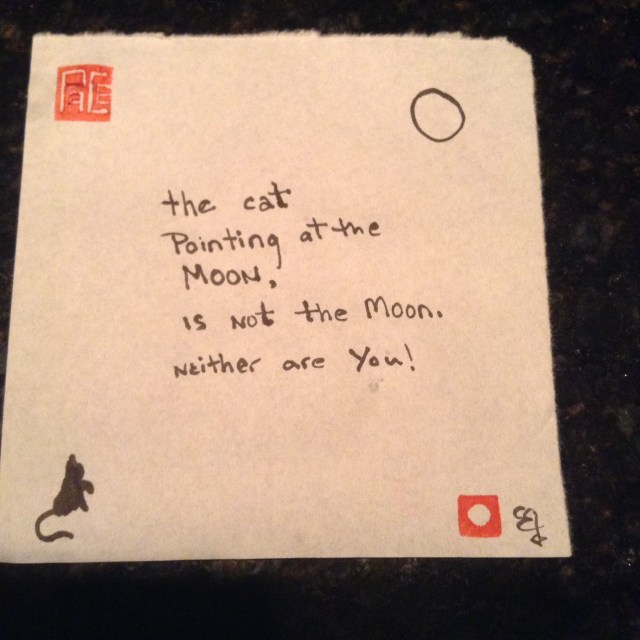 the cat
Pointing at the
MOON,
is not the Moon.
Neither are You!